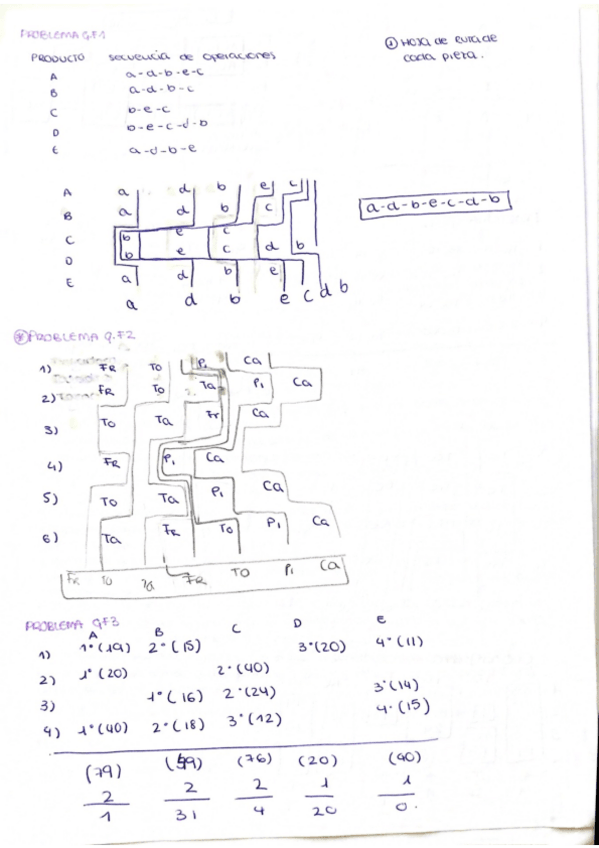 PROBLEMA 9.F1
① HOJA de RUTA de cada pieza.
PRODUCTO secuencia de operaciones
A a-d-b-e-c
B a-d-b-c
C b-e-c
D b-e-c-d-b
E a-d-b-e
A a d b e c
B a d b c
C b e c
D b e c d b
E a d b e
a d b e c d b
a-d-b-e-c-d-b
PROBLEMA 9.F2
1) FR TO Pi Ca
2) FR TO Ta Pi Ca
3) TO Ta Fr Ca
4) FR Pi Ca
5) TO Ta Pi Ca
6) Ta FR TO Pi Ca
FR TO Ta FR TO Pi Ca
PROBLEMA 9F3
A B C D E
1) 1º(19) 2º(15) 3º(20) 4º(11)
2) 1º(20) 2º(40)
3) 1º(16) 2º(24) 3º(14)
4) 1º(40) 2º(18) 3º(12) 4º(15)
(79) (49) (76) (20) (40)
2 2 2 1 1
1 31 4 20 0.